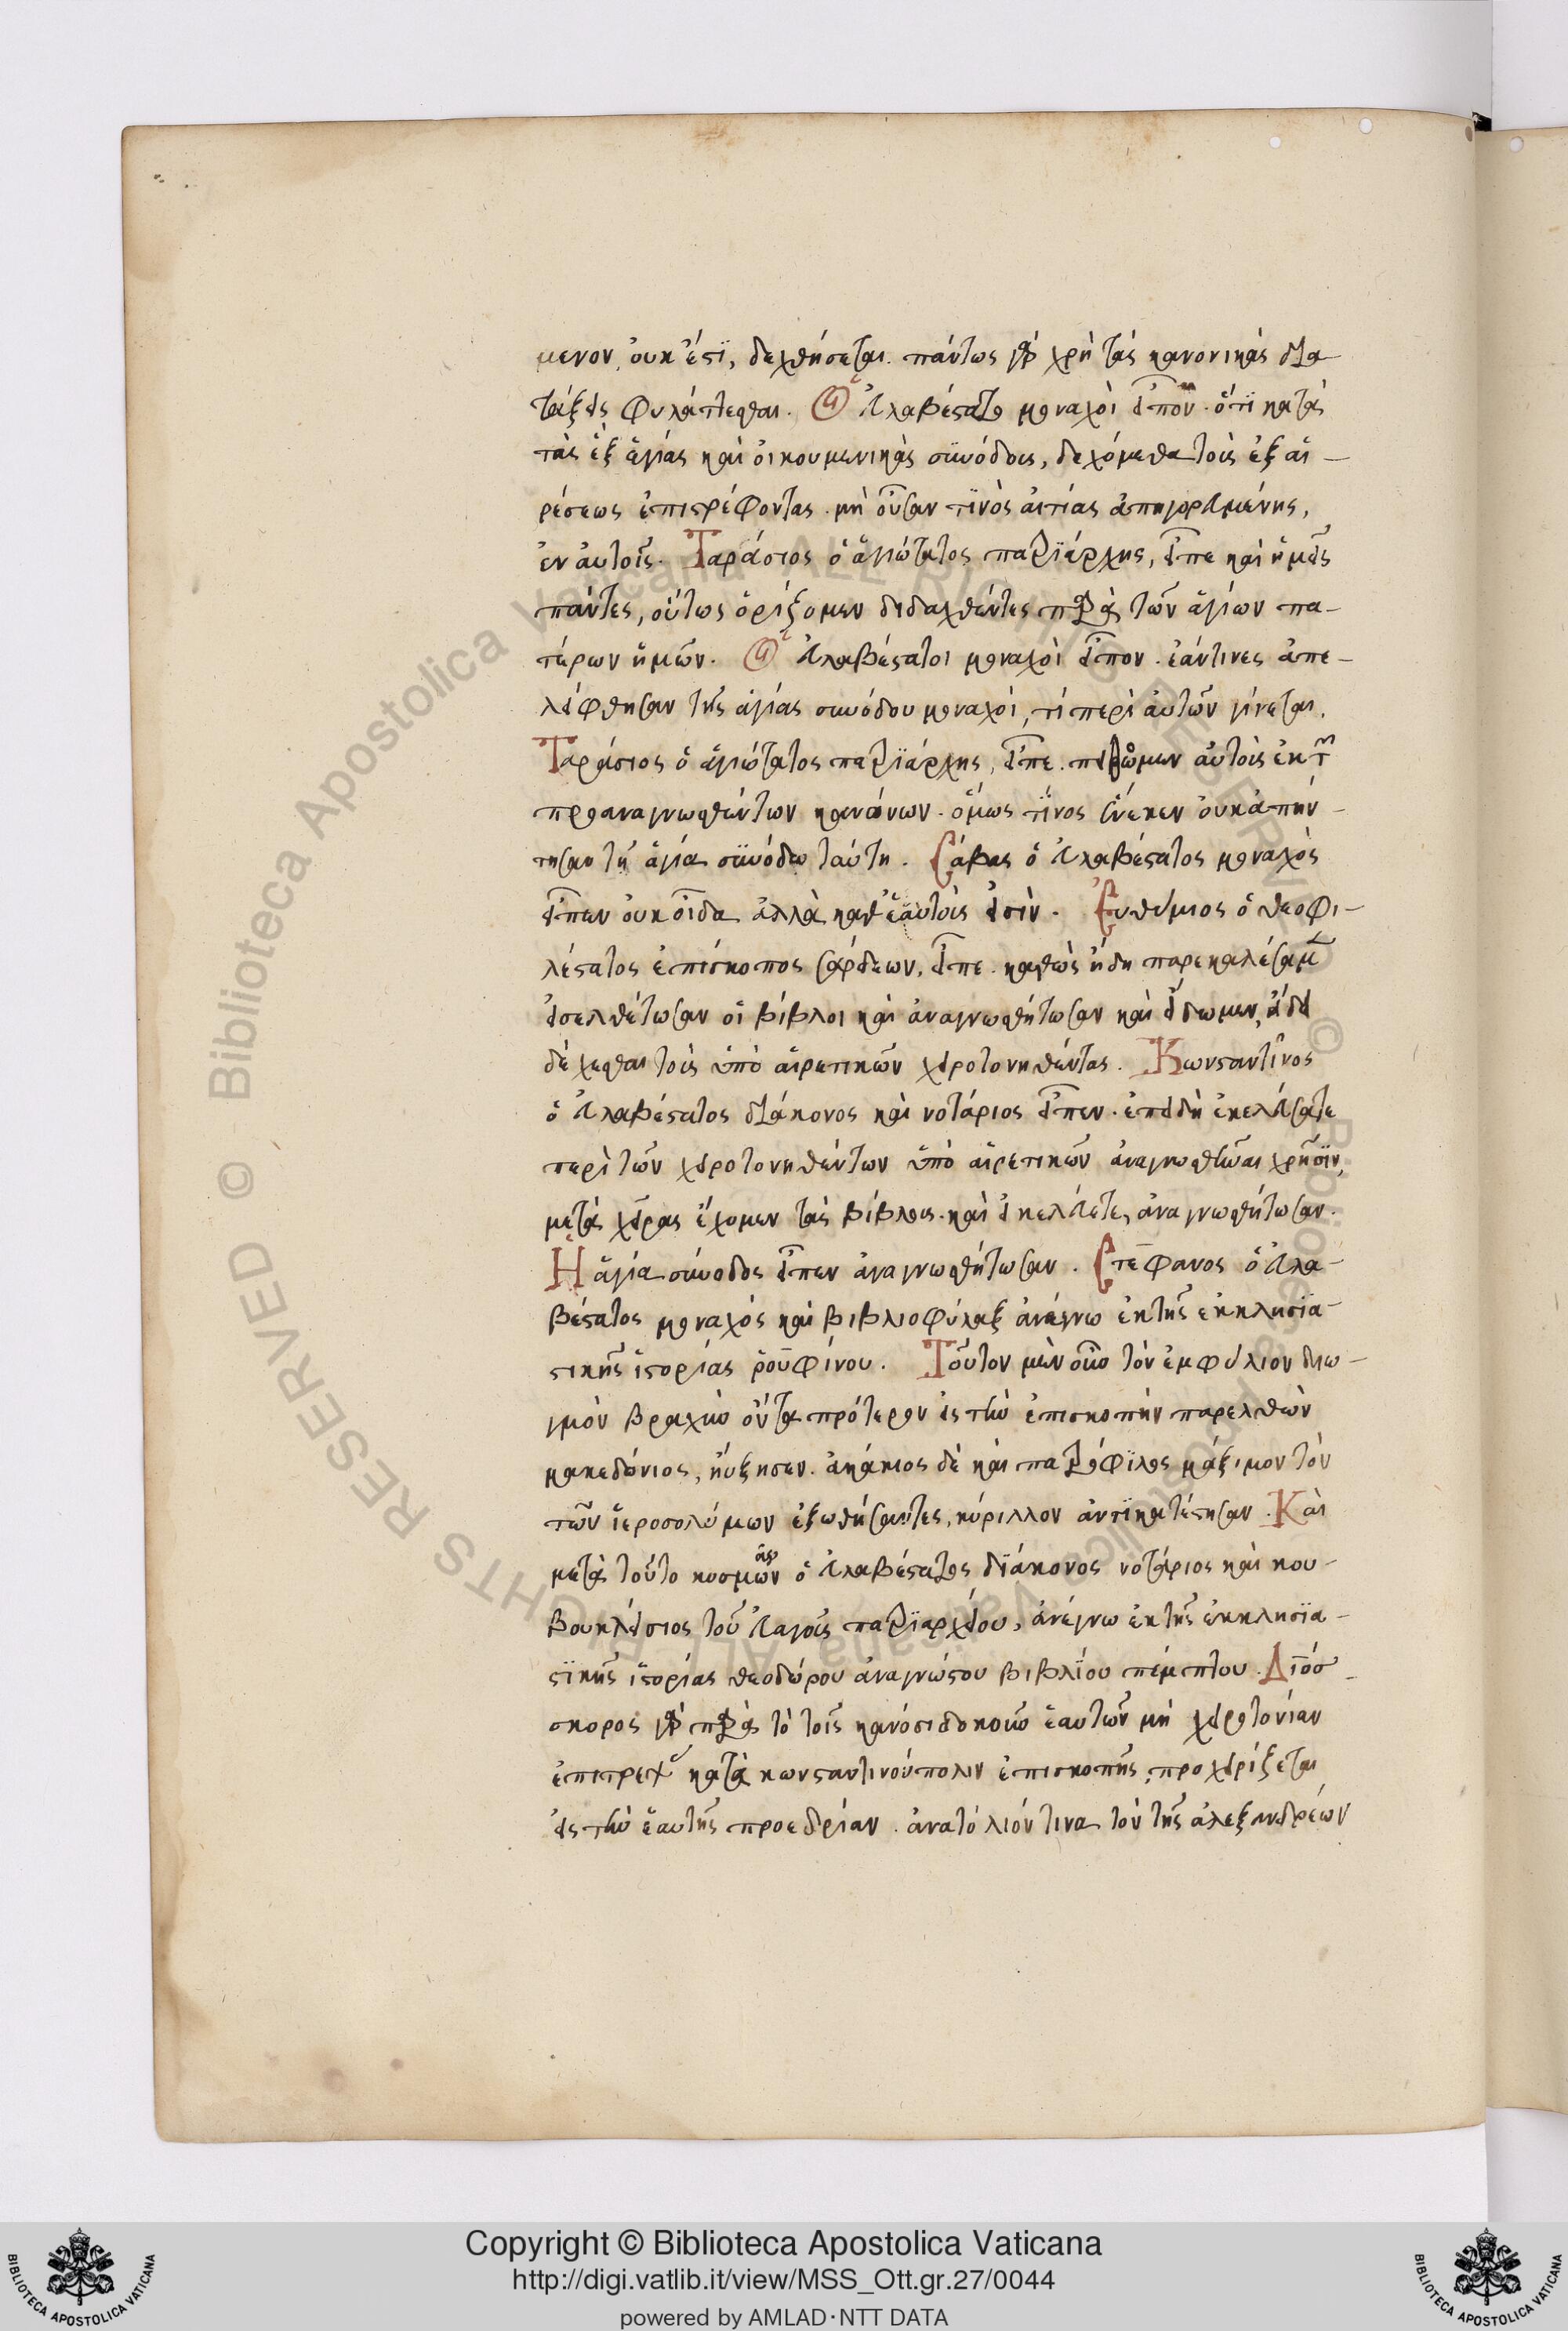 μενον, οὐκ ἔστι, δεχθήσεται. πάντως γὰρ χρὴ τὰς κανονικὰς δια
τάξεις φυλάττεσθαι. Οἱ εὐλαβέστατοι μοναχοὶ εἶπον. ὅτι κατὰ
τὰς ἓξ ἁγίας καὶ οἰκουμενικὰς συνόδους, δεχόμεθα τοὺς ἐξ αἱ-
ρέσεως ἐπιστρέφοντας. μὴ οὖσαν τινὸς αἰτίας ἀπηγορευμένης,
ἐν αὐτοῖς. Ταράσιος ὁ ἁγιώτατος πατριάρχης, εἶπε καὶ ἡμεῖς
πάντες, οὕτως ὁρίζομεν διδαχθέντες παρὰ τῶν ἁγίων πα-
τέρων ἡμῶν. Οἱ εὐλαβέστατοι μοναχοὶ εἶπον. ἐάν τινες ἀπε-
λείφθησαν τῆς ἁγίας συνόδου μοναχοί, τί περὶ αὐτῶν γίνεται.
Ταράσιος ὁ ἁγιώτατος πατριάρχης, εἶπε. αὐτοὺς ἐκ τῶν
προαναγνωσθέντων κανόνων. ὅμως τίνος ἕνεκεν οὐκ ἀπήν-
τησαν τῇ ἁγία συνόδω ταύτη. Σάβας ὁ εὐλαβέστατος μοναχὸς
εἶπεν οὐκ οἶδα ἀλλὰ καθ' ἑαυτοὺς εἰσὶν. Εὐθύμιος ὁ θεοφι-
λέστατος ἐπίσκοπος σάρδεων, εἶπε. καθὼς ἤδη παρεκαλέσαμεν
εἰσελθέτωσαν οἱ βίβλοι καὶ ἀναγνωσθήτωσαν καὶ εἴδωμεν, εἰ δεῖ
δέχεσθαι τοὺς ὑπὸ αἱρετικῶν χειροτονηθέντας. Κωνσταντῖνος
ὁ εὐλαβέστατος διάκονος καὶ νοτάριος εἶπεν. ἐπειδὴ ἐκελεύσατε
περὶ τῶν χειροτονηθέντων ὑπὸ αἱρετικῶν ἀναγνωσθῆναι χρῆσιν,
μετὰ χεῖρας ἔχομεν τὰς βίβλους. καὶ εἰ κελεύετε, ἀναγνωσθήτωσαν.
Ἡ ἁγία σύνοδος εἶπεν ἀναγνωσθήτωσαν. Στέφανος ὁ εὐλα-
βέστατος μοναχὸς καὶ βιβλιοφύλαξ ἀνέγνω ἐκ τῆς ἐκκλησια-
στικῆς ἱστορίας ῥουφίνου. Τοῦτον μὲν οὖν τὸν ἐμφύλιον διω-
γμὸν βραχὺν ὄντα πρότερον εἰς τὴν ἐπισκοπὴν παρελθὼν
μακεδόνιος, ηὔξησεν. ἀκάκιος δὲ καὶ πατρόφιλος μάξιμον τὸν
τῶν ἱεροσολύμων ἐξωθήσαντες, κύριλλον ἀντικατέστησαν. Καὶ
μετὰ τοῦτο κοσμᾶς ὁ εὐλαβέστατος διάκονος νοτάριος καὶ κου-
βουκλείσιος τοῦ εὐαγοῦς πατριαρχείου, ἀνέγνω ἐκ τῆς ἐκκλησια-
στικῆς ἱστορίας θεοδώρου ἀναγνώστου βιβλίου πέμπτου. Διόσ-
σκορος γὰρ παρὰ τὸ τοῖς κανόσι δοκοῦν ἑαυτῶν μὴ χειροτονίαν
κατὰ κωνσταντινούπολιν ἐπισκοπῆς, προχειρίζεται
εἰς τὴν ἑαυτῆς προεδρίαν. ἀνατόλιόν τινα τὸν τῆς ἀλεξανδρέων
Copyright © Biblioteca Apostolica Vaticana
http://digi.vatlib.it/view/MSS_Ott.gr.27/0044
powered by AMLAD·NTT DATA